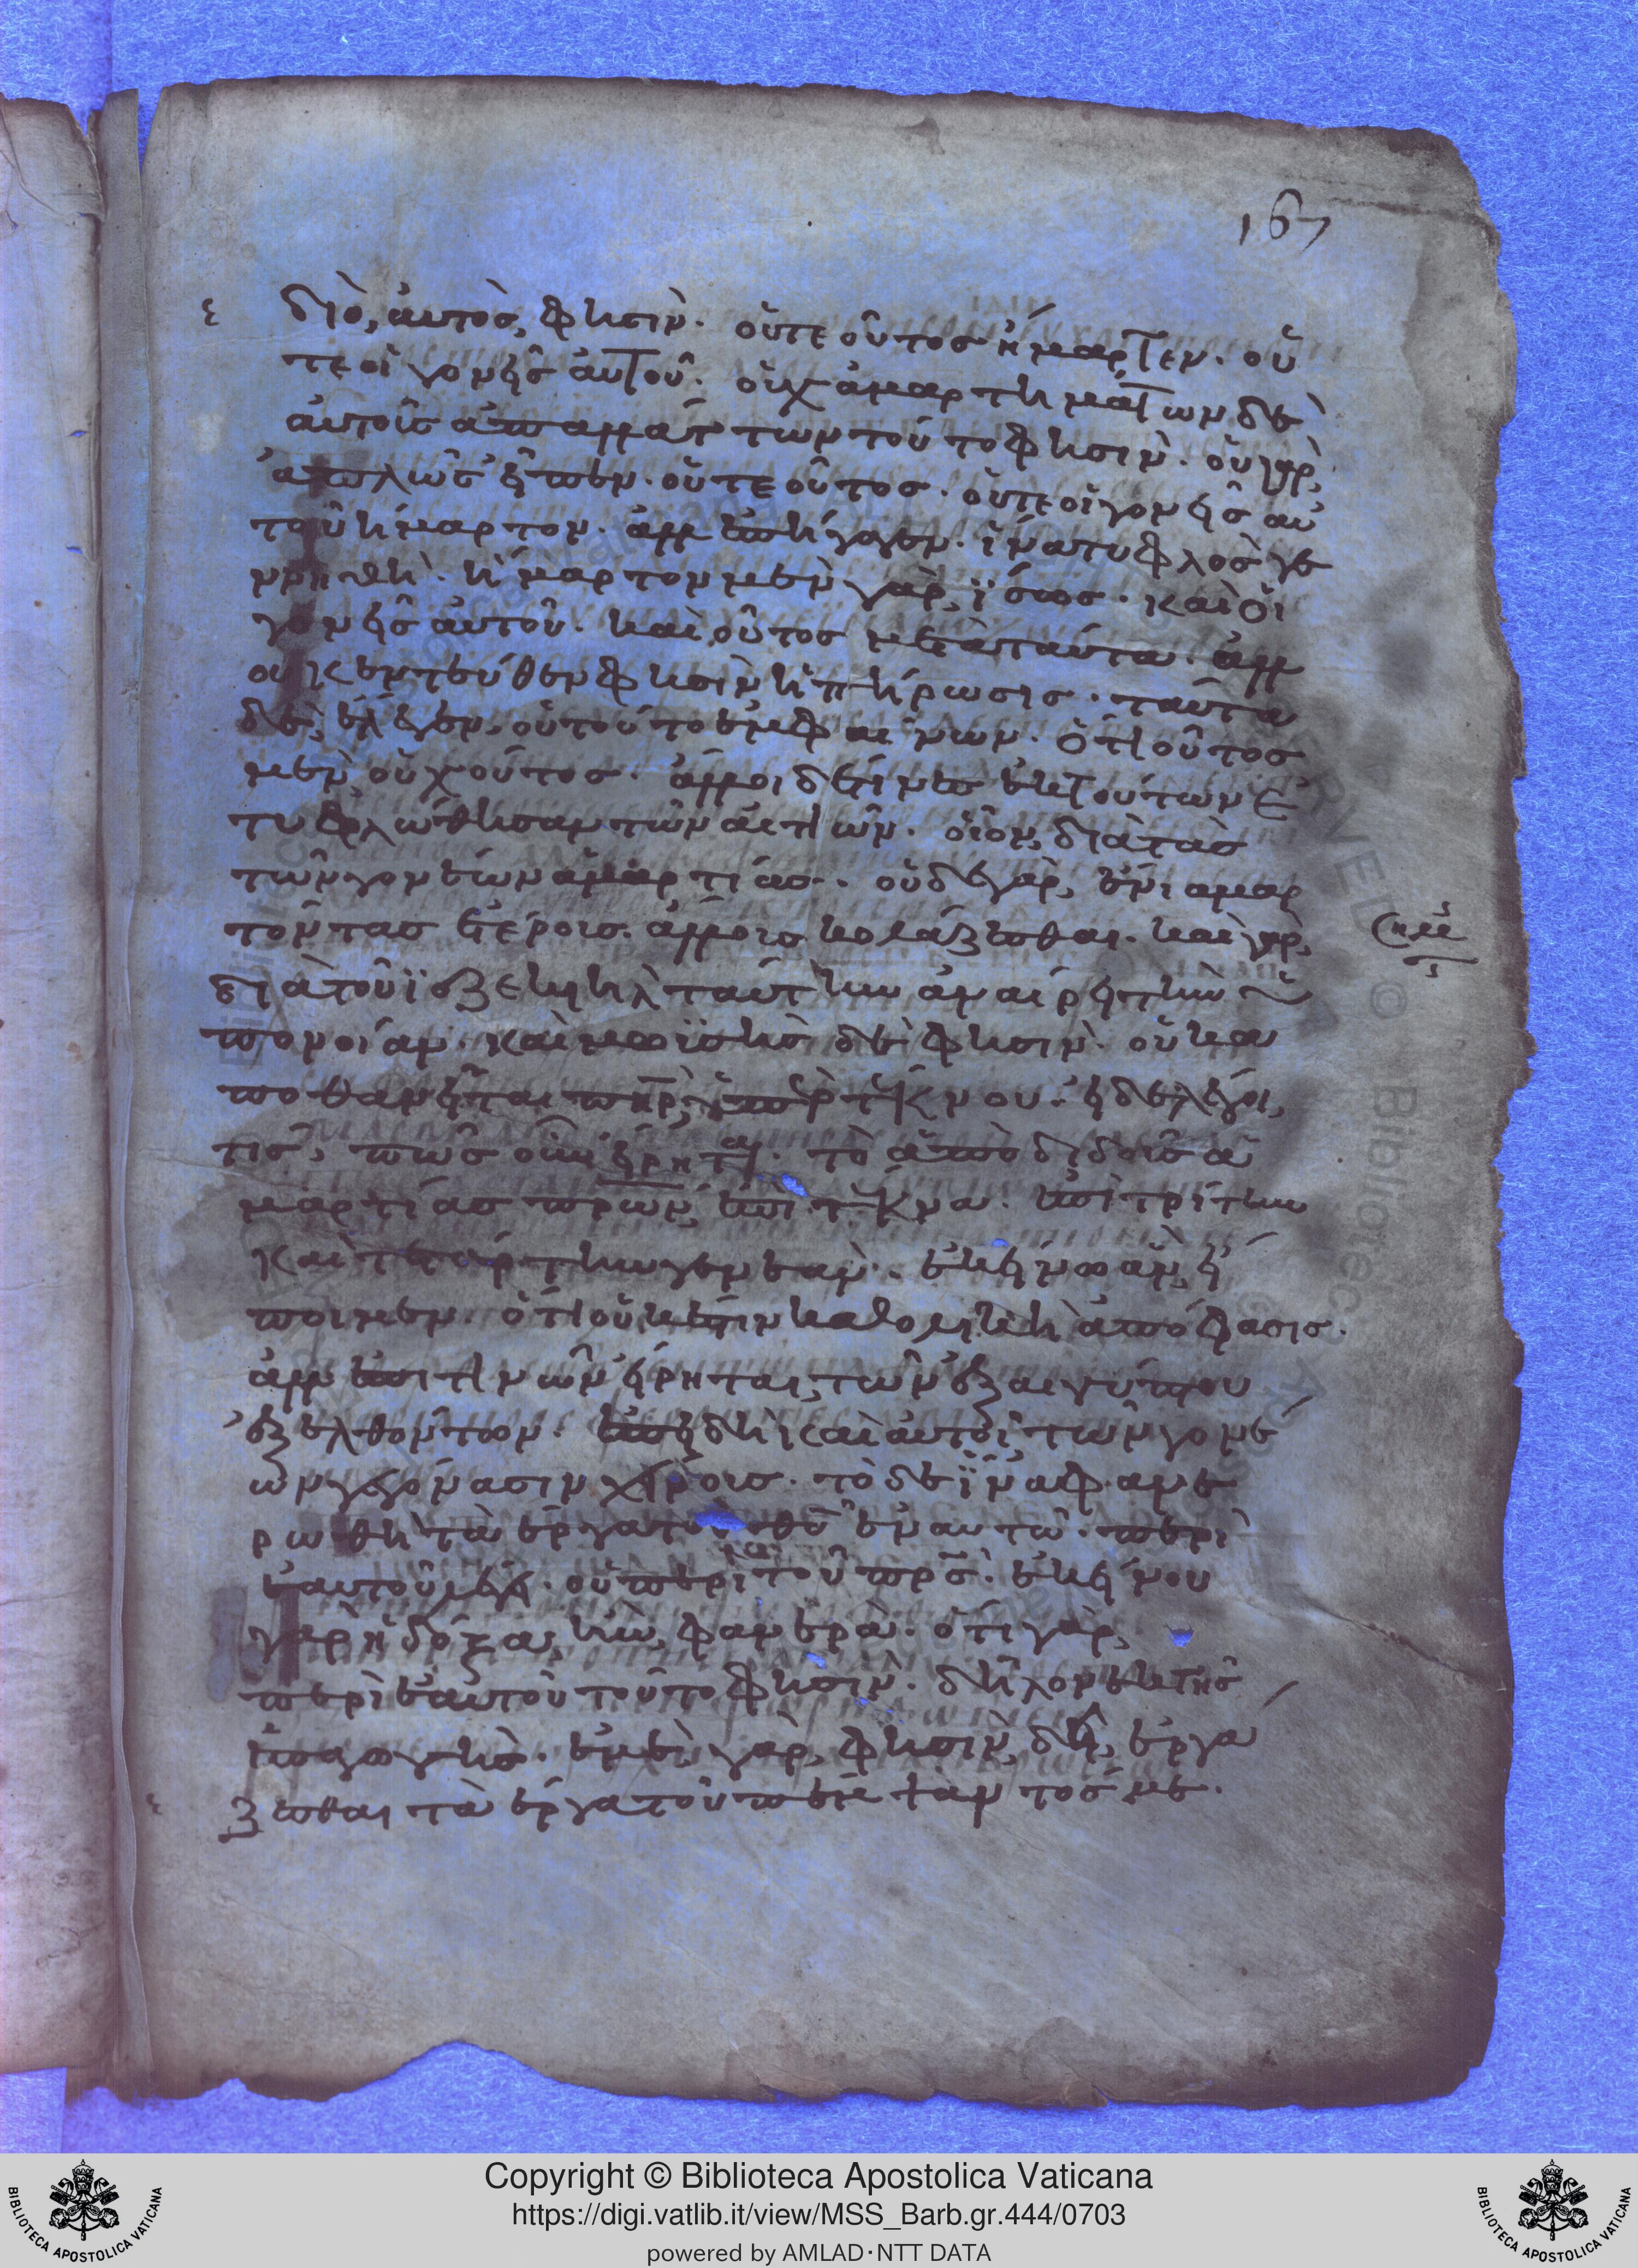 167
διὸ, αὐτὸς φησὶν· οὔτε οὗτος ἥμαρτεν· οὔ
τε οἱ γονεῖς αὐτοῦ· οὐχ ἁμαρτημάτων δὲ
αὐτοὺς ἀπαλλάττων τοῦτο φησὶν· οὐ γὰρ
ἁπλῶς εἶπεν· οὔτε οὗτος· οὔτε οἱ γονεῖς αὐ
τοῦ ἥμαρτον· ἀλλ ἐπήγαγεν· ἵνα τυφλὸς γε
ννηθῆ· ἥμαρτον μὲν γὰρ ἴσως· καὶ οἱ
γονεῖς αὐτοῦ· καὶ οὗτος μετὰ ταῦτα· ἀλλ
οὐκ ἐντεύθεν φησὶν ἡ πήρωσις· ταῦτα
δὲ ἔλεγεν, οὐ τοῦτο ἐμφαίνων· ὅτι οὗτος
μὲν οὐχ οὕτως· ἄλλοι δέ τινες ἐκ τούτων ἐ
τυφλώθησαν τῶν αἰτιῶν· οἷον, διὰ τὰς
τῶν γονέων ἁμαρτίας· οὐδὲ γὰρ, ἔνι ἁμαρ
τόντος ἑτέρου· ἄλλον κολάζεσθαι· καὶ γὰρ
διὰ τοῦ ἰεζεκιὴλ ταύτην ἀναιρεῖ τὴν ὑ
πόνοιαν· καὶ μωϋσῆς δὲ φησὶν· οὐκ ἀ
ποθανεῖται πηρ, ὑπὲρ τέκνου· εἰ δὲ λέγοι
τις, πῶς οὖν εἴρηται· τὸ ἀποδιδοὺς ἁ
μαρτίας πρων, ἐπὶ τέκνα· ἐπὶ τρίτην
καὶ τετάρτην γενεάν· ἐκεῖνο ἂν εἴ
ποιμεν· ὅτι οὐκ ἔστιν καθολικὴ ἀπόφασις·
ἀλλ ἐπί τινῶν εἴρηται, τῶν ἐξ αἰγύπτου
ἐξελθόντων· ἐπειδὴ καὶ αὐτοὶ τῶν γονέ
ων γεγόνασιν χείρους· τὸ δὲ ἵνα φανε
ρωθῆ τὰ ἔργα τοῦ θυ ἐν αυτῶ· περὶ
ἑαυτοῦ λέγει· οὐ περὶ τοῦ πρς· ἐκείνου
γὰρ ἡ δόξα, ἦν, φανερὰ· ὅτι γὰρ
περὶ ἑαυτοῦ τοῦτο φησὶν· δῆλον ἐκ τῆς
ἐπαγωγῆς· ἐμὲ γὰρ, φησὶν, δεῖ, ἐργά
ζεσθαι τὰ ἔργα τοῦ πέμψαντος με·
Copyright © Biblioteca Apostolica Vaticana
https://digi.vatlib.it/view/MSS_Barb.gr.444/0703
powered by AMLAD·NTT DATA
BIBLIOTECA APOSTOLICA VATICANA
BIBLIOTECA APOSTOLICA VATICANA